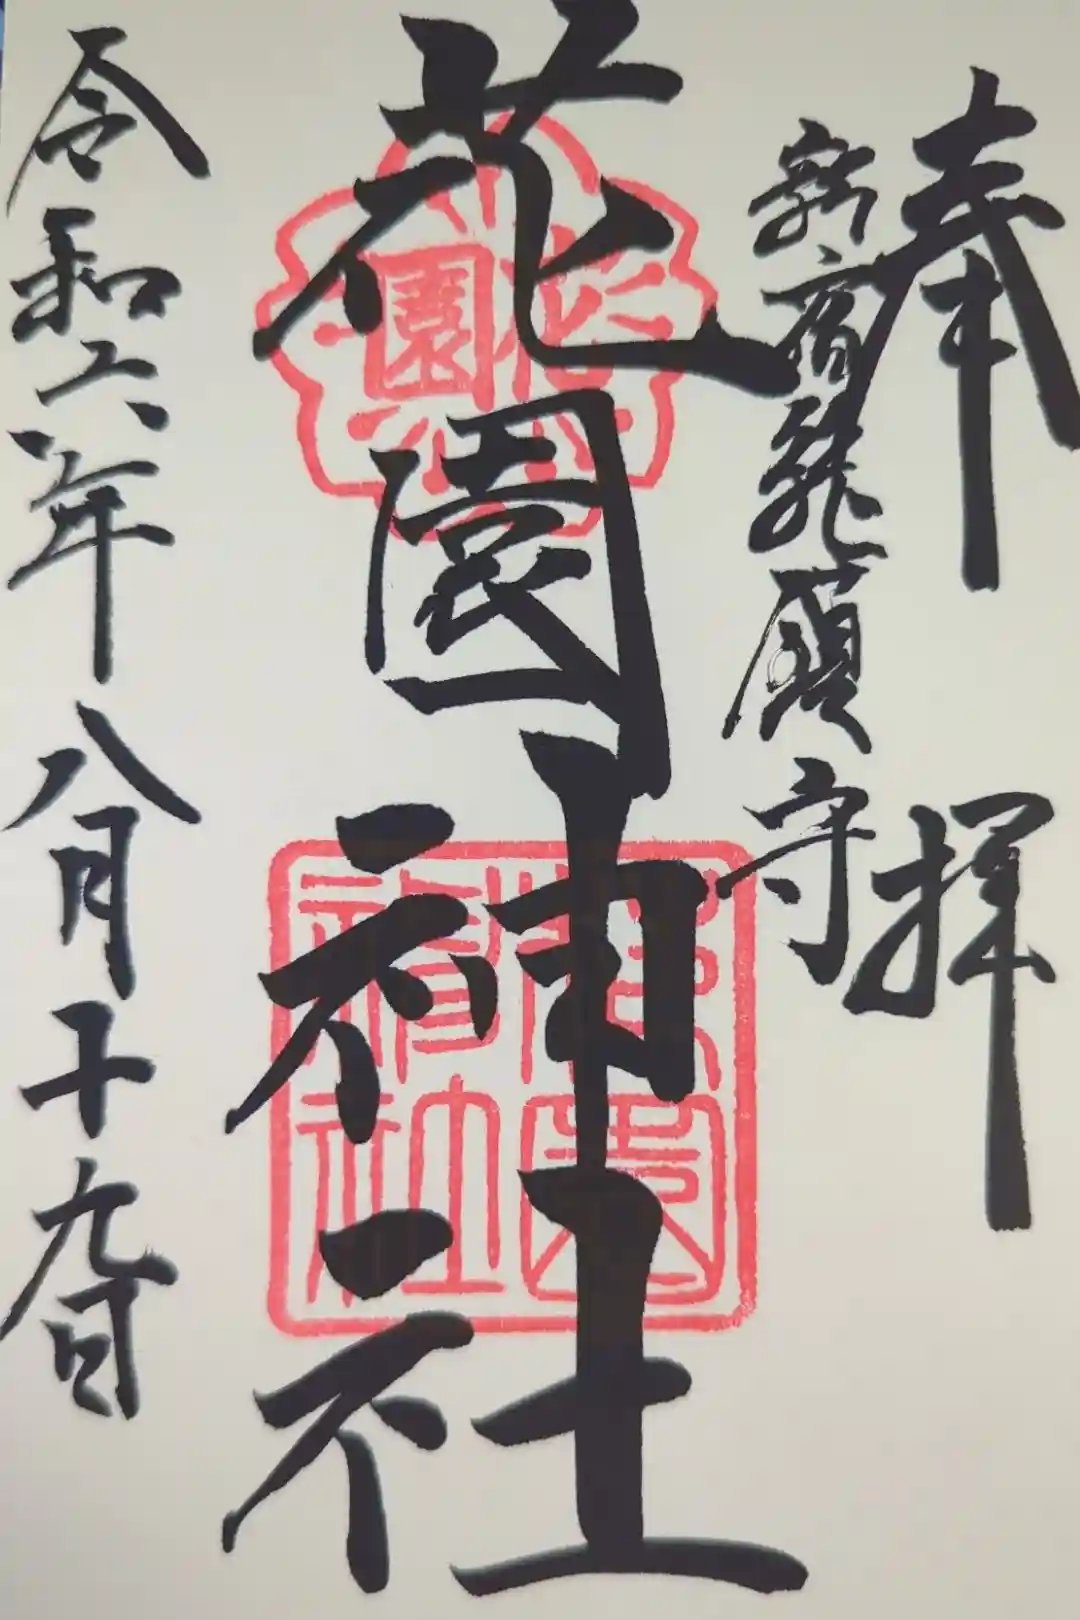 奉拝
新宿総鎮守
花園神社
花園
花園神社
令和六年八月十九日